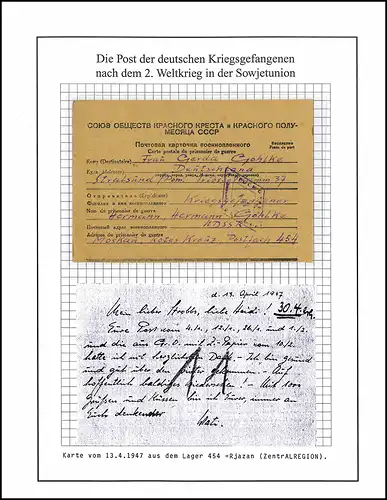 Die Post der deutschen Kriegsgefangenen
nach dem 2. Weltkrieg in der Sowjetunion
СОЮЗ ОБЩЕСТВ КРАСНОГО КРЕСТА и КРАСНОГО ПОЛУ-
МЕСЯЦА СССР
Почтовая карточка военнопленного
Carte postale du prisonnier de guerre
Бесплатно
Franc de port
Кому (Destinataire) Frau Gerda Gohlke
Куда (Adresse) Deutschland
Stralsund 37
Отправитель (Expéditeur) Kriegsgefangener
Фамилия и имя военнопленного
Nom du prisonnier de guerre
Hermann Gohlke
Почтовый адрес военнопленного UDSSR
Adresse du prisonnier de guerre
Moskau, Rotes Kreuz Postfach 454
d. 13. April 1947
Mein liebes liebe Heidi! 30.4.
Eure Post vom 4./1., 12./1., 26./1. und 1./2.
und die aus G. O. mit L-Papier vom 10./2.
hatte ich mit herzlichem Dank. Ich bin gesund
und gut über den Winter gekommen. Auf
hoffentlich baldiges Wiedersehen! Seid 1000
Grüßen und Küssen bin ich Euer, immer an
Euch denkender
Vati.
Karte vom 13.4.1947 aus dem Lager 454 =Rjazan (ZentrALREGION).